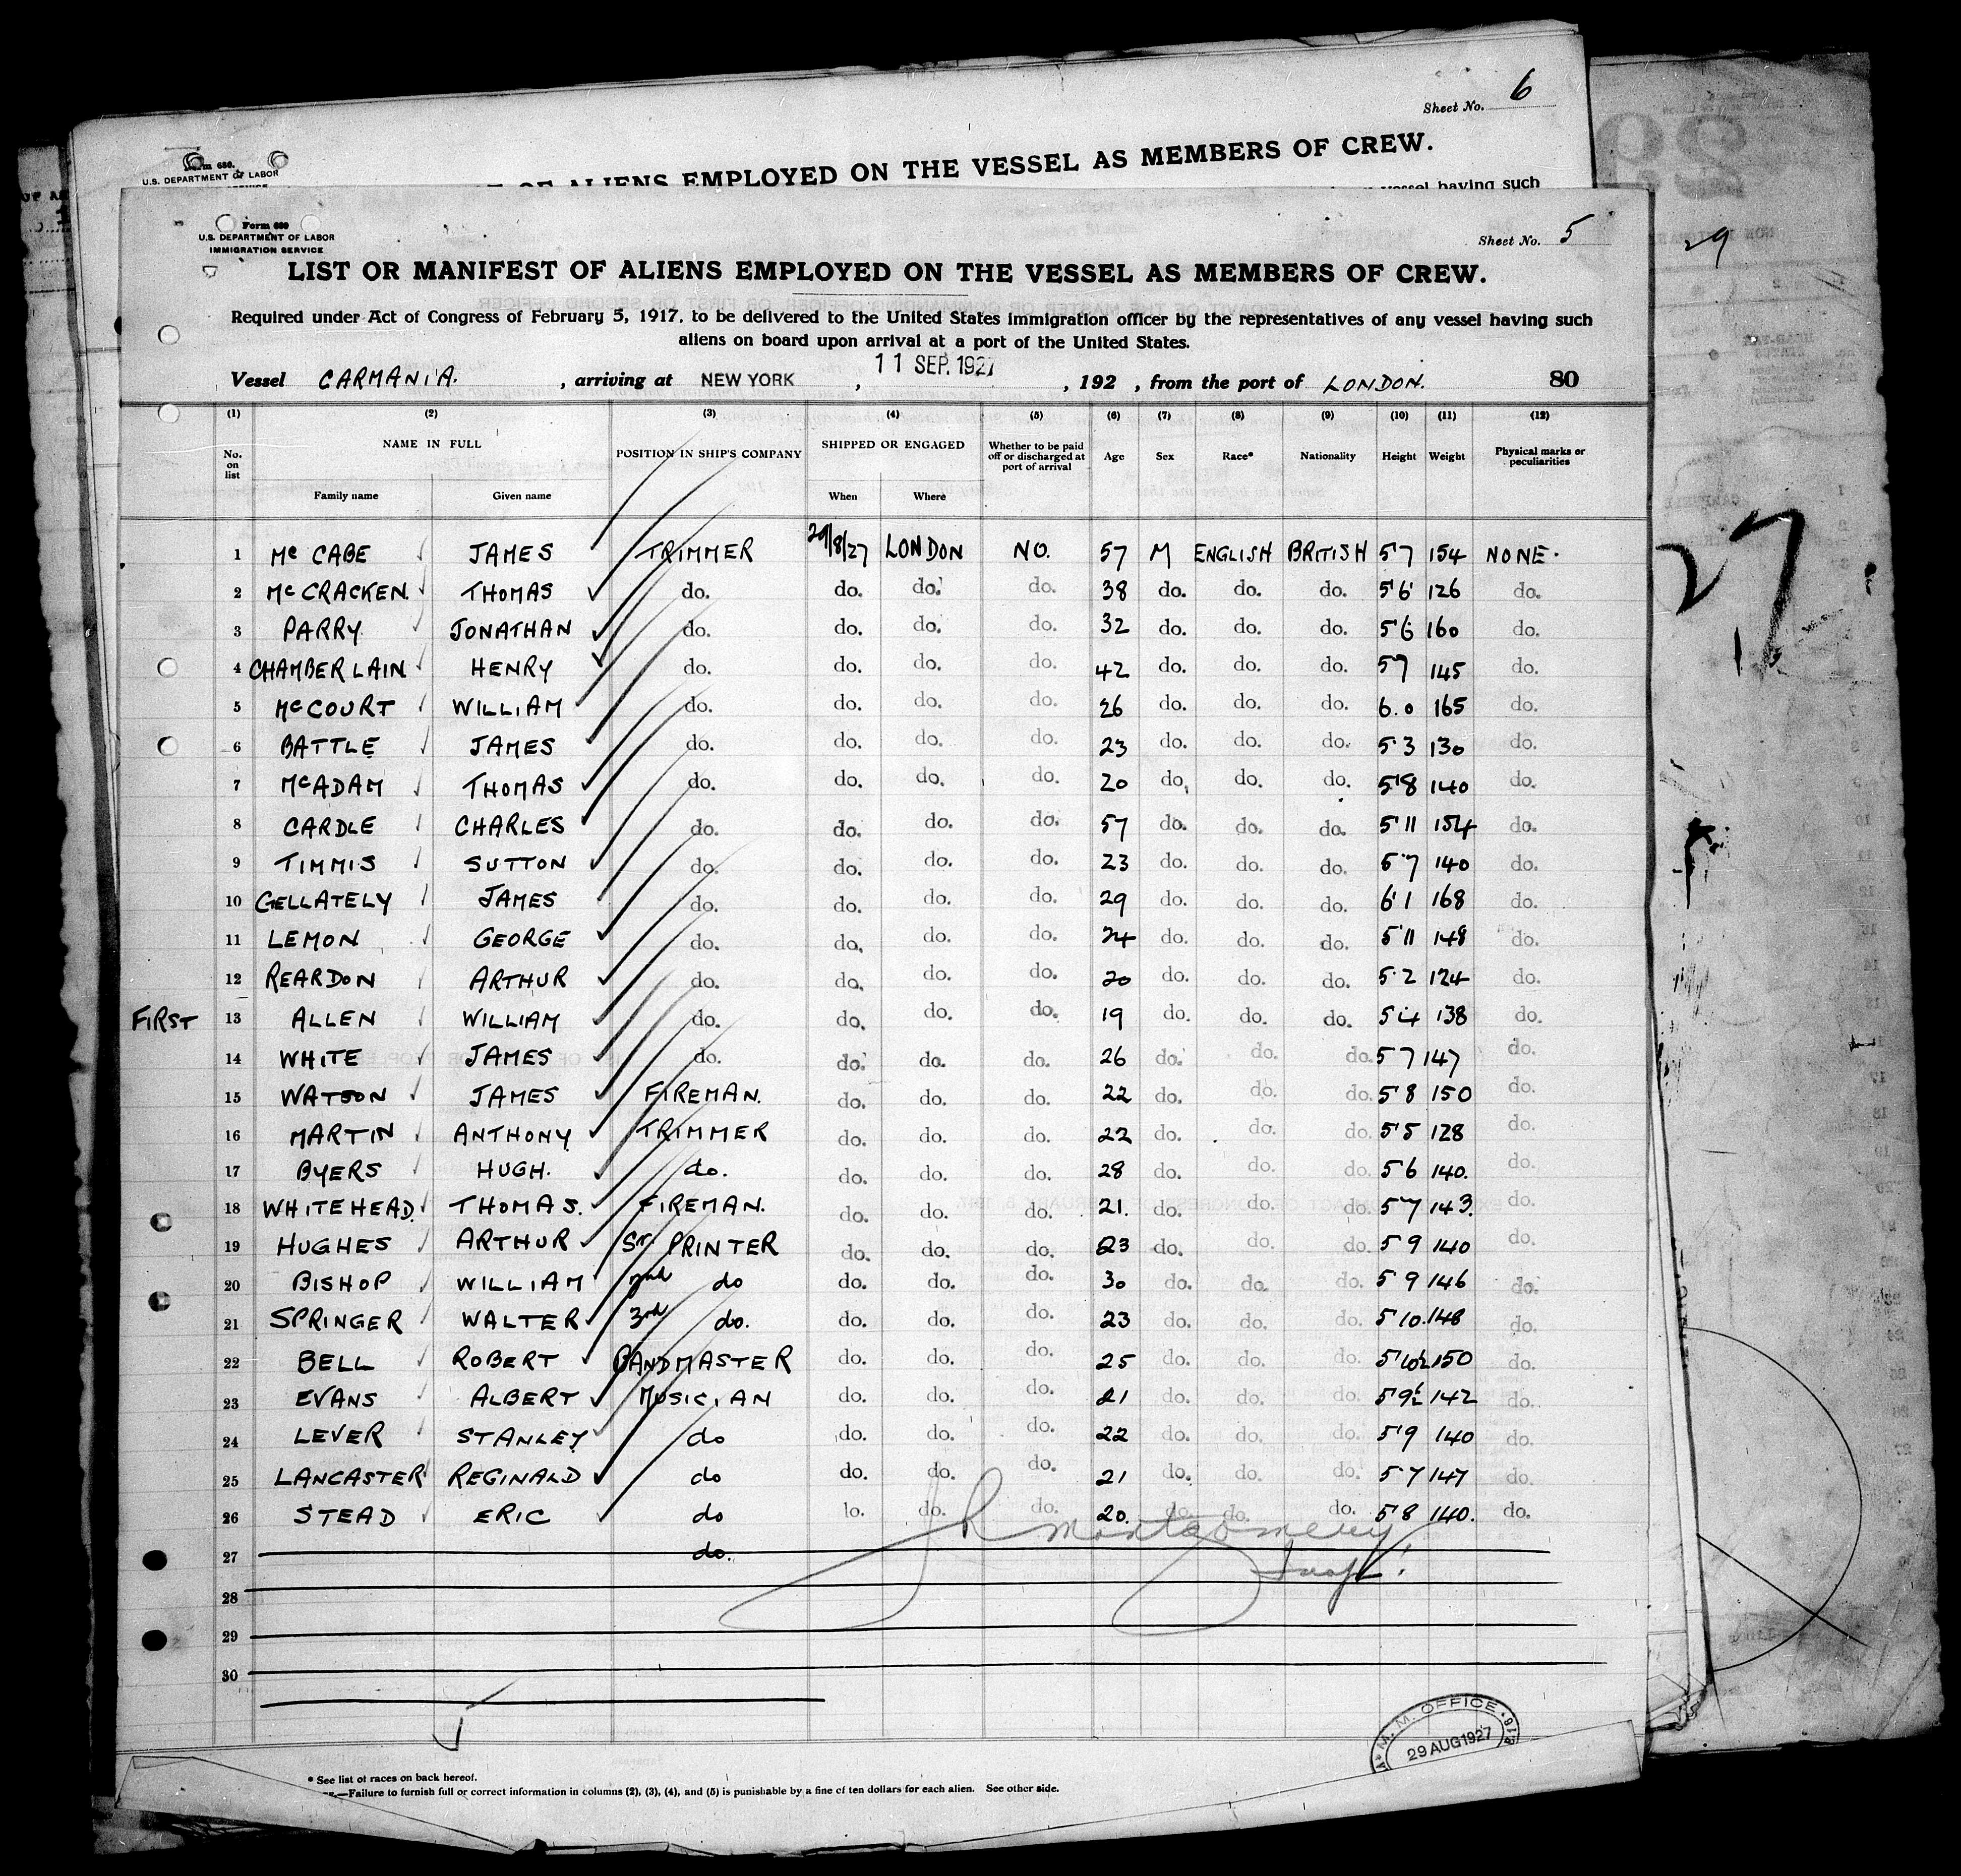 Sheet No. 6
Form 680.
U.S. DEPARTMENT OF LABOR
OF ALIENS EMPLOYED ON THE VESSEL AS MEMBERS OF CREW.
vessel having such
29
Form 680
U.S. DEPARTMENT OF LABOR
IMMIGRATION SERVICE
Sheet No. 5
LIST OR MANIFEST OF ALIENS EMPLOYED ON THE VESSEL AS MEMBERS OF CREW.
Required under Act of Congress of February 5, 1917, to be delivered to the United States immigration officer by the representatives of any vessel having such
aliens on board upon arrival at a port of the United States.
Vessel CARMANIA. , arriving at NEW YORK , 11 SEP. 1927 , 192 , from the port of LONDON. 80
(1) (2) (3) (4) (5) (6) (7) (8) (9) (10) (11) (12)
No. on list NAME IN FULL POSITION IN SHIP'S COMPANY SHIPPED OR ENGAGED Whether to be paid off or discharged at port of arrival Age Sex Race* Nationality Height Weight Physical marks or peculiarities
Family name Given name When Where
1 McCABE JAMES TRIMMER 29/8/27 LONDON NO. 57 M ENGLISH BRITISH 5'7 154 NONE.
2 McCRACKEN THOMAS do. do. do. do. 38 do. do. do. 5'6 126 do.
3 PARRY JONATHAN do. do. do. do. 32 do. do. do. 5'6 160 do.
4 CHAMBERLAIN HENRY do. do. do. do. 42 do. do. do. 57 145 do.
5 McCOURT WILLIAM do. do. do. do. 26 do. do. do. 6.0 165 do.
6 BATTLE JAMES do. do. do. do. 23 do. do. do. 5'3 130 do.
7 McADAM THOMAS do. do. do. do. 20 do. do. do. 5'8 140 do.
8 CARDLE CHARLES do. do. do. do. 57 do. do. do. 5'11 154 do.
9 TIMMIS SUTTON do. do. do. do. 23 do. do. do. 5'7 140 do.
10 GELLATELY JAMES do. do. do. do. 29 do. do. do. 6'1 168 do.
11 LEMON GEORGE do. do. do. do. 24 do. do. do. 5'11 148 do.
12 REARDON ARTHUR do. do. do. do. 20 do. do. do. 5'2 124 do.
FIRST 13 ALLEN WILLIAM do. do. do. do. 19 do. do. do. 5'4 138 do.
14 WHITE JAMES do. do. do. do. 26 do. do. do. 5 7 147 do.
15 WATSON JAMES FIREMAN. do. do. do. 22 do. do. do. 5'8 150 do.
16 MARTIN ANTHONY TRIMMER do. do. do. 22 do. do. do. 5'5 128 do.
17 BYERS HUGH. do. do. do. do. 28 do. do. do. 5'6 140. do.
18 WHITEHEAD. THOMAS. FIREMAN. do. do. do. 21. do. do. do. 5'7 143. do.
19 HUGHES ARTHUR Sr. PRINTER do. do. do. 23 do. do. do. 5 9 140 do.
20 BISHOP WILLIAM 2nd do do. do. do. 30 do. do. do. 5 9 146 do.
21 SPRINGER WALTER 3rd do. do. do. do. 23 do. do. do. 5'10. 148 do.
22 BELL ROBERT BANDMASTER do. do. do. 25 do. do. do. 5'10½ 150 do.
23 EVANS ALBERT MUSICIAN do. do. do. 21 do. do. do. 5'9½ 142 do.
24 LEVER STANLEY do do. do. do. 22 do. do. do. 5'9 140 do.
25 LANCASTER REGINALD do do. do. do. 21 do. do. do. 5'7 147 do.
26 STEAD ERIC do do. do. do. 20. do. do. do. 5'8 140. do.
27 do.
Montgomery
28
29
30
M. M. OFFICE
29 AUG 1927
* See list of races on back hereof.
—Failure to furnish full or correct information in columns (2), (3), (4), and (5) is punishable by a fine of ten dollars for each alien. See other side.
27